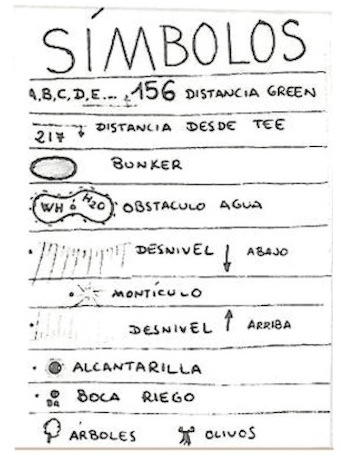 SÍMBOLOS
A,B,C,D,E... 156 DISTANCIA GREEN
217 DISTANCIA DESDE TEE
BUNKER
WH ó H2O OBSTACULO AGUA
DESNIVEL ABAJO
MONTÍCULO
DESNIVEL ARRIBA
ALCANTARILLA
BR BOCA RIEGO
ÁRBOLES OLIVOS